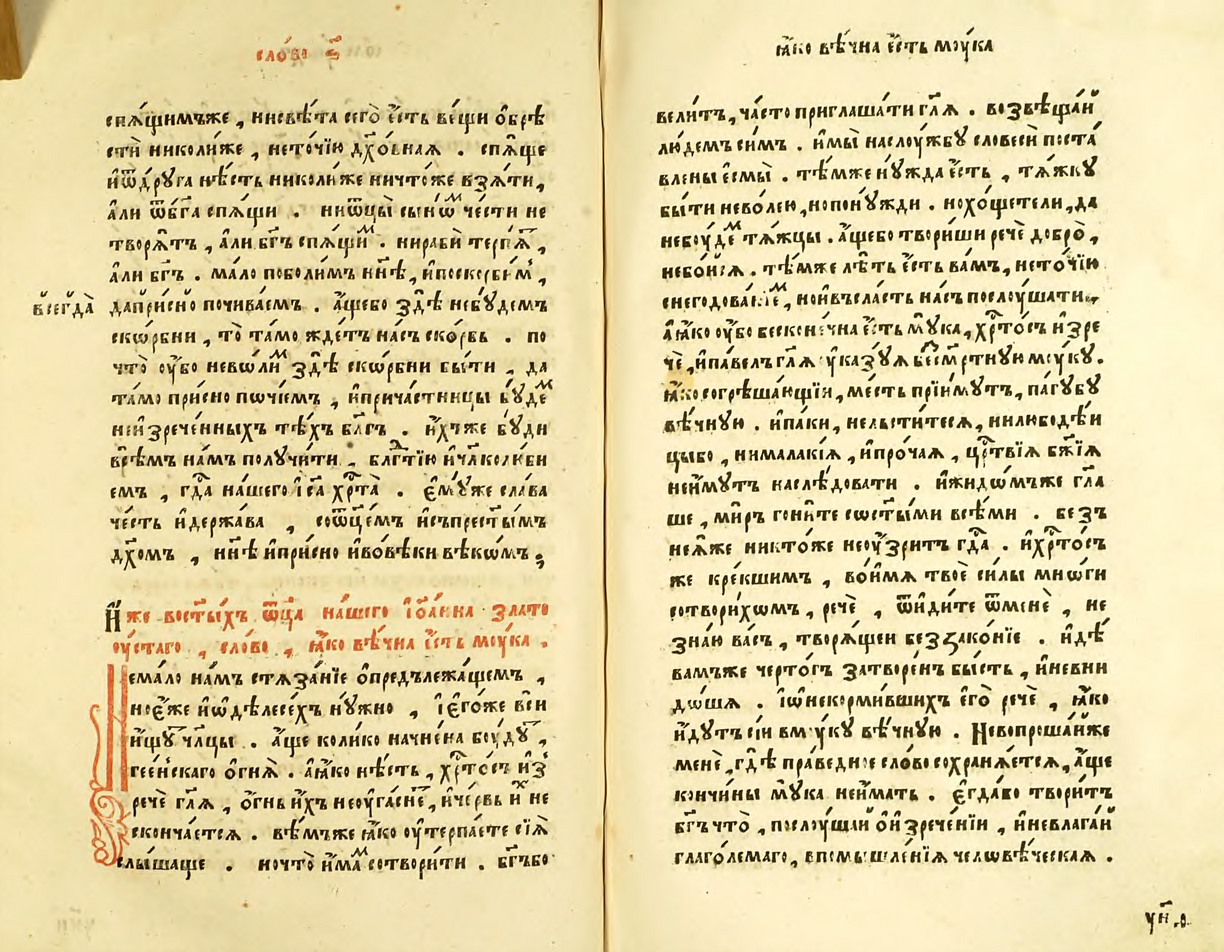 сло́во ѯ҃
спѧ́щимъже , нисвѣ́та сего̀ є҆́сть ве́щи ѡ҆брѣ
стѝ николи́же , неточі́ю дх҃о́внаѧ . спѧ́ще
и҆ѿдрꙋ́га нѣ́сть николи́же ничто́же взѧ́ти ,
а҆́ли ѿбг҃а спѧ́щи . ниѿцы̀ сынѡ́м че́сти не
творѧ́тъ , а҆́ли бг҃ъ спѧ́щим . нирабѝ
а҆́ли бг҃ъ . ма́ло поболи́мъ нн҃ѣ , и҆поскорби́м ,
всегда̀
дапри́сно почива́емъ . а҆́щебо здѣ̀ небꙋ́демъ
ско́рбни , то̀ та́мо жде́тъ на́съ ско́рбь . по
что̀ ᲂу҆́бо нево́лим здѣ̀ ско́рбни бы́ти , да
та́мо при́сно почі́емъ , и҆прича́стницы бꙋ́дем
неи҆зрече́нныхъ тѣ́хъ бл҃гъ . и҆́хже бꙋ́ди
всѣ́мъ на́мъ полꙋчи́ти , блгⷣтїю и҆чл҃колю́би
емъ , гдⷭ҇а на́шего і҆с҃а хрⷭ҇та̀ . є҆мꙋ́же сла́ва
че́сть и҆держа́ва , соѿц҃е́мъ и҆съпрест҃ы́мъ
дх҃омъ , нн҃ѣ и҆при́сно и҆во́вѣки вѣкѡ́мъ ;
И҆́же вост҃ы́хъ ѿц҃а на́шего і҆ѡа́нна злато
ᲂу҆́стаго , сло́во , ꙗ҆́ко вѣ́чна є҆́сть мꙋ́ка .
Нема́ло на́мъ стѧза́нїе ѡ҆предълежа́щемъ ,
ное҆́же и҆ѡ҆дѣлесе́хъ нꙋ́жно , і҆є҆го́же вси
и҆́щꙋт чл҃цы . а҆́ще коли́ко начне́на бꙋ́дꙋт ,
гее́нскаго о҆гнѧ̀ . а҆ꙗ҆́ко нѣ́сть , хрⷭ҇то́съ и҆з
речѐ гл҃ѧ , о҆́гнь и҆́хъ неᲂуга́снет , и҆че́рвь и҆́х не
сконча́етсѧ . вѣ́мъже ꙗ҆́ко ᲂу҆терпа́ете сїѧ̀
слы́шаще . ночто̀ и҆́мам сотвори́ти . бг҃ъбо
ꙗ҆́ко вѣ́чна є҆́сть мꙋ́ка
вели́тъ , ча́сто приглаша́ти гл҃ѧ . возвѣща́й
лю́демъ си́мъ . и҆мы̀ наслꙋ́жбꙋ словесѝ поста́
влены є҆смы̀ . тѣ́мже нꙋ́жда є҆́сть , тѧ́жкꙋ
бы́ти нево́лею , нопонꙋ́жди . нохо́щетели , да
небꙋ́дем тѧ́жцы . а҆́щебо твори́ши речѐ добро̀ ,
небо́йсѧ . тѣ́мже лѣ́ть є҆́сть ва́мъ , неточі́ю
снегодова́нїем , нои҆въсла́сть на́съ послꙋ́шати .
а҆ꙗ҆́ко ᲂу҆́бо бесконе́чна є҆́сть мꙋ́ка , хрⷭ҇то́съ и҆зре
чѐ , и҆па́велъ гл҃ѧ ᲂу҆каз́ꙋѧ бесме́ртнꙋю мꙋ́кꙋ .
ꙗ҆́ко согрѣша́ющїи , ме́сть прїи́мꙋтъ , па́гꙋбꙋ
вѣ́чнꙋю . и҆па́ки , нельсти́тесѧ , нилюбодѣ́и
цыбо , нимала́кїѧ , и҆про́чаѧ , црⷭ҇твїѧ бж҃їѧ
неи҆́мꙋтъ наслѣ́довати . и҆жидѡ́мъже гл҃а
ше , ми́ръ гони́те сост҃ы́ми всѣ́ми . безъ
неѧ́же никто́же неᲂу҆́зритъ гдⷭ҇а . и҆хрⷭ҇то́съ
же кре́кшимъ , вои҆́мѧ твоѐ си́лы мнѡ́ги
сотвори́хомъ , речѐ , ѿи҆ди́те ѿменѐ , не
зна́ю ва́съ , творѧ́щеи беззако́нїе . и҆дѣ́
вамъже черто́гъ затворе́нъ бы́сть , и҆невни
до́шѧ . і҆ѡ҆некорми́вшихъ є҆го̀ речѐ , ꙗ҆́ко
и҆́дꙋтъ сїи вмꙋ́кꙋ вѣ́чнꙋю . Невопроша́йже
менѐ , гдѣ̀ пра́ведное сло́во сохранѧ́етсѧ , а҆́ще
кончи́ны мꙋ́ка неи҆́мать . є҆гда́бо твори́тъ
бг҃ъ что̀ , послꙋ́шли о҆и҆зрече́нїи , и҆невлага́й
глаго́лемаго , впомышле́нїѧ человѣ́ческаѧ .
ᲂун҃ .